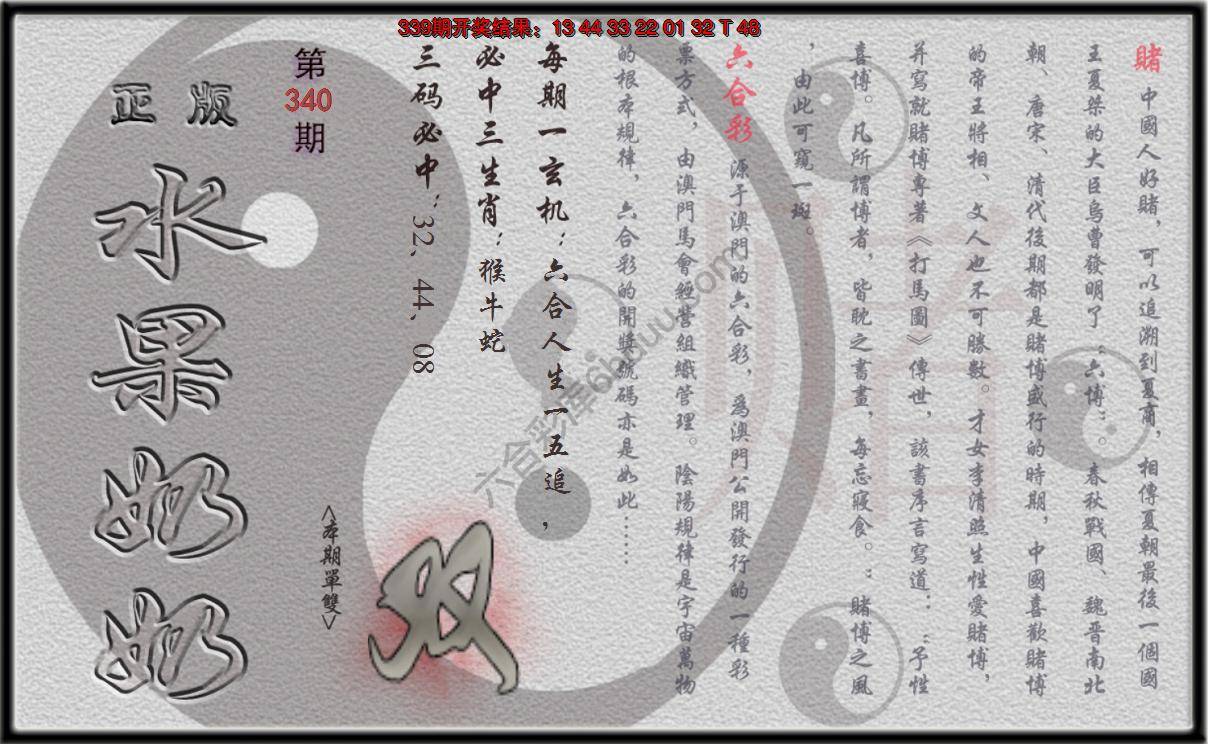 339期开奖结果：13 44 33 22 01 32 T 48
賭 中國人好賭，可以追溯到夏商，相傳夏朝最後一個國
王夏桀的大臣烏曹發明了“六博”。春秋戰國、魏晋南北
朝、唐宋、清代後期都是賭博盛行的時期，中國喜歡賭博
的帝王將相、文人也不可勝數。才女李清照生性愛賭博，
并寫就賭博專著《打馬圖》傳世，該書序言寫道：“予性
喜博。凡所謂博者，皆耽之晝晝，每忘寢食。：賭博之風
，由此可窺一斑。
六合彩 源于澳門的六合彩，爲澳門公開發行的一種彩
票方式，由澳門馬會經營組織管理。陰陽規律是宇宙萬物
的根本規律，六合彩的開獎號碼亦是如此……
每期一玄机：六合人生一五追，
必中三生肖：猴牛蛇
三码必中：32、44、08
第
340
期
正版
水果奶奶
<本期單雙>
双
六合彩库6hduu.com